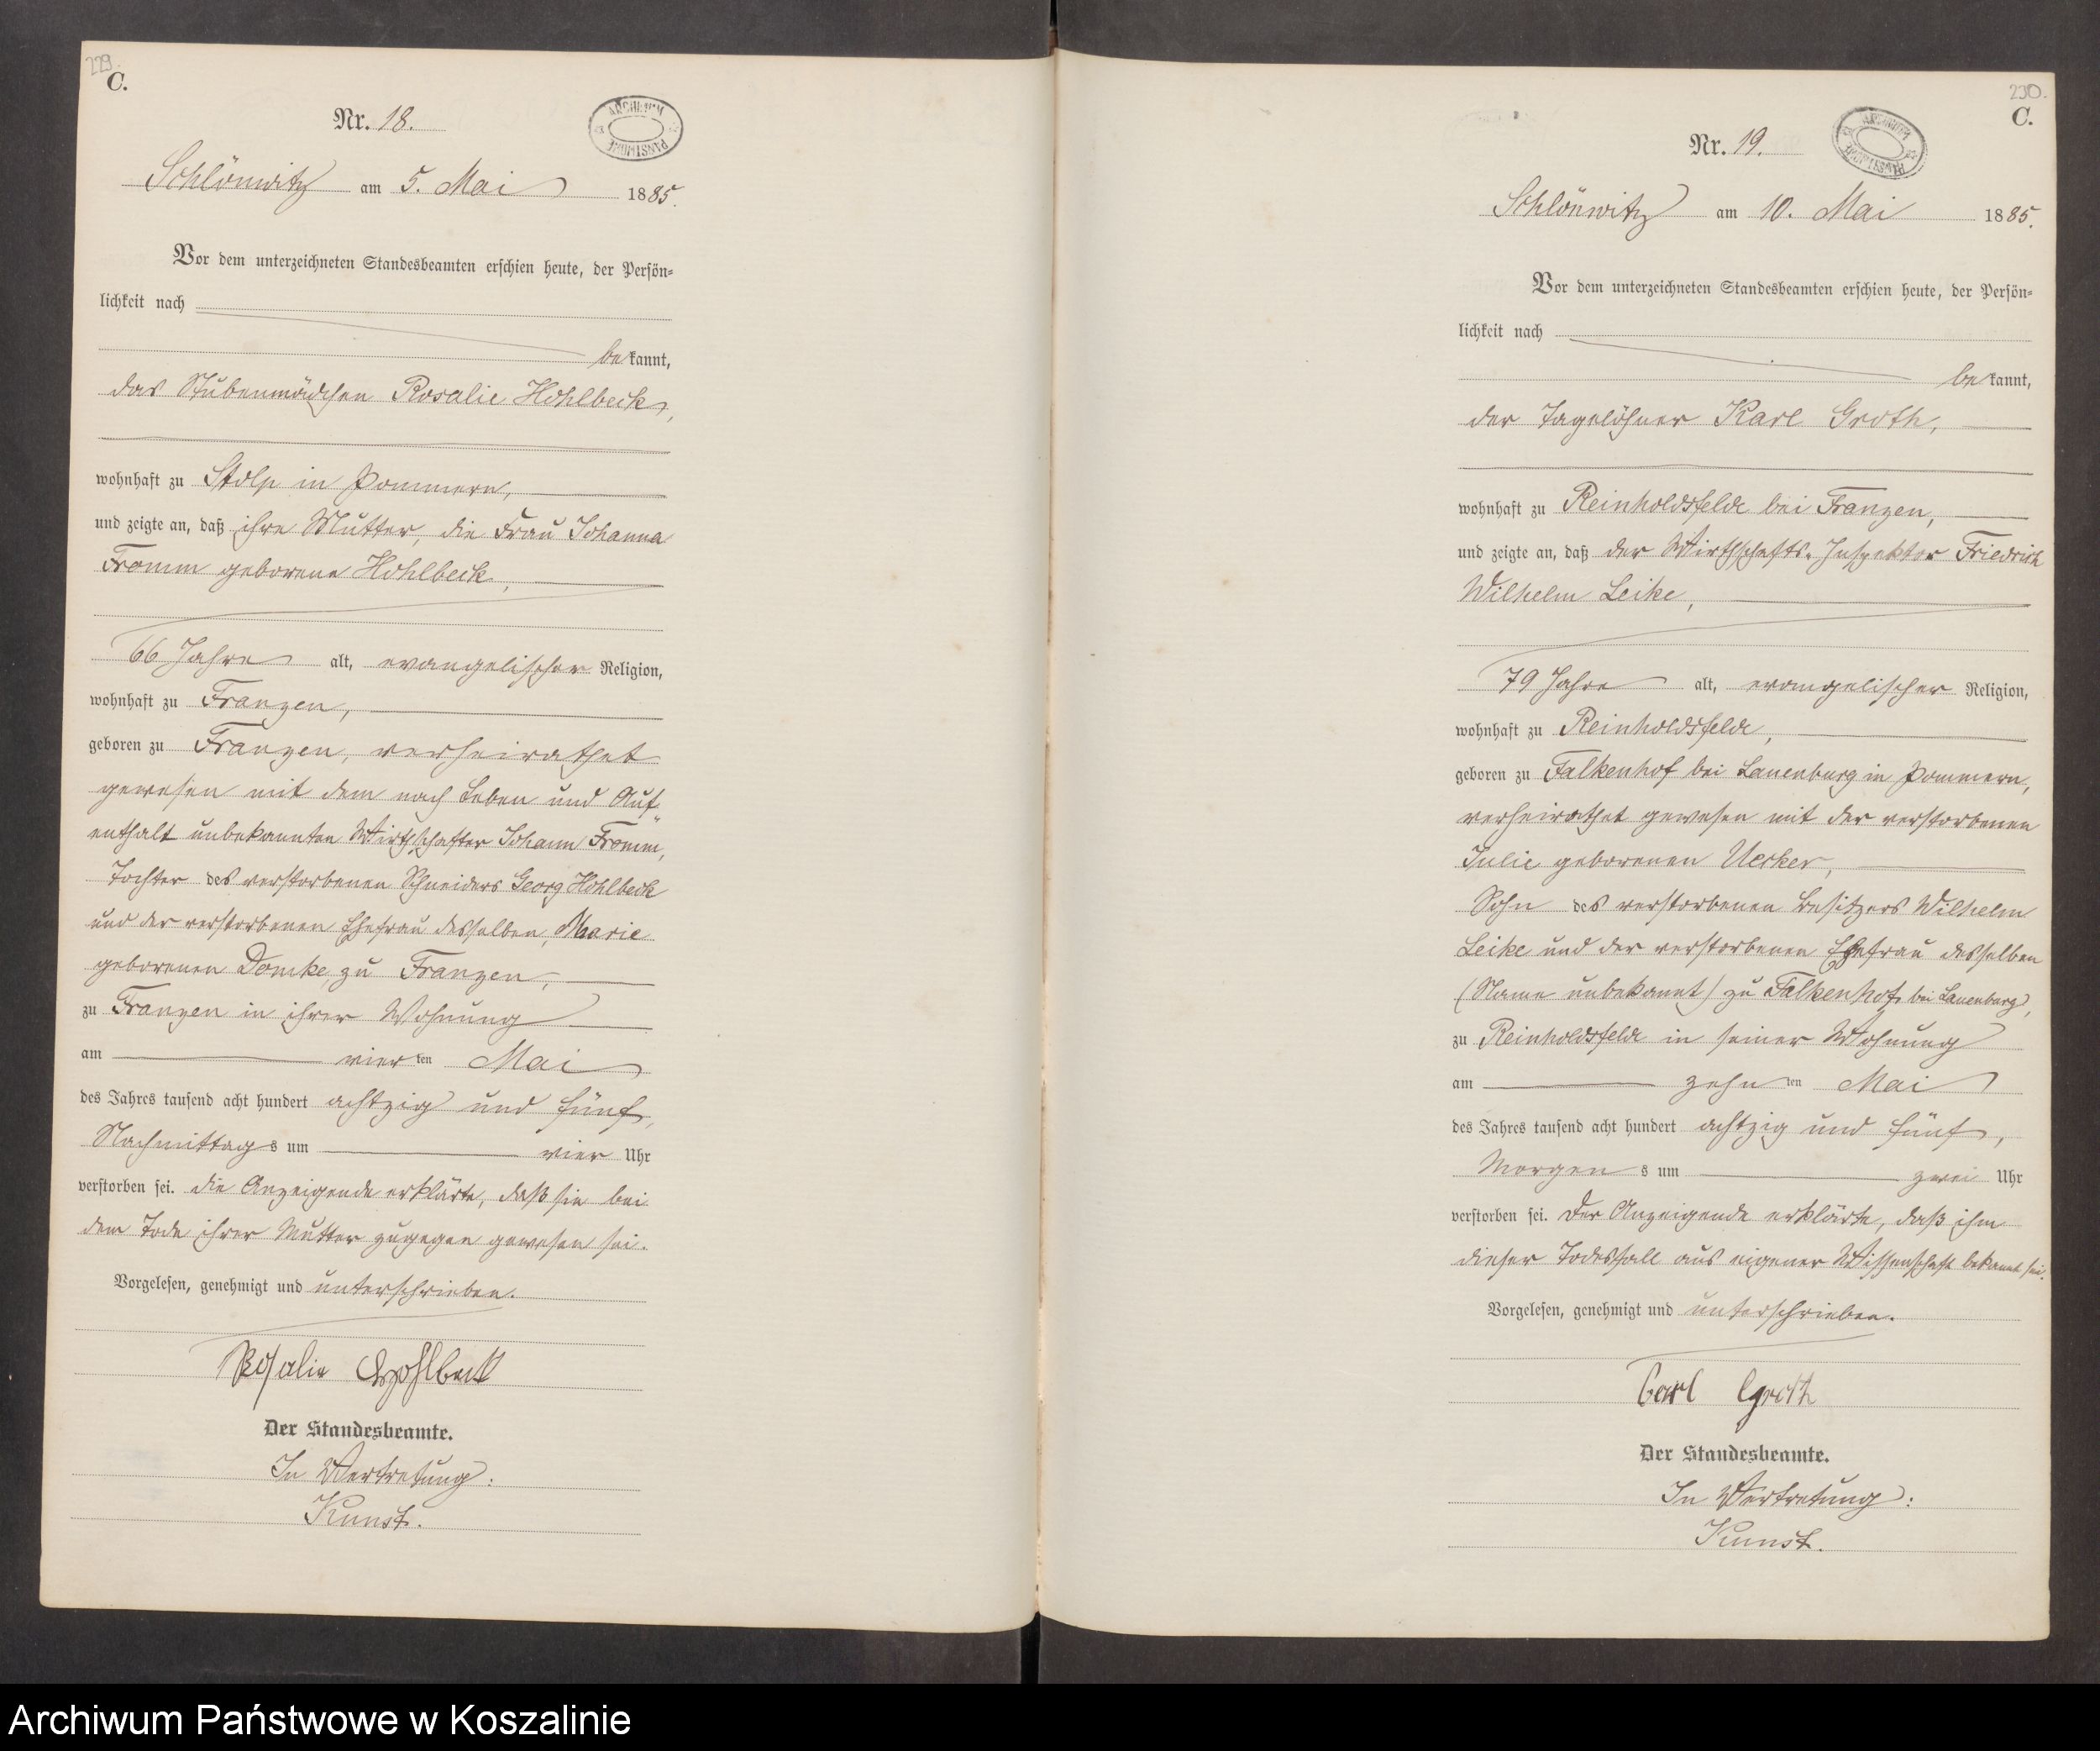 229.
C.
Nr. 18.
ARCHIWUM PAŃSTWOWE
Schlönwitz am 5. Mai 1885.
Vor dem unterzeichneten Standesbeamten erschien heute, der Persön-
lichkeit nach
bekannt,
das Stubenmädchen Rosalie Hohlbeck,
wohnhaft zu Stolp in Pommern,
und zeigte an, daß ihre Mutter, die Frau Johanna
Fromm geborene Hohlbeck,
66 Jahre alt, evangelischer Religion,
wohnhaft zu Franzen,
geboren zu Franzen, verheirathet
gewesen mit dem nach Leben und Auf-
enthalt unbekannten Wirthschafter Johann Fromm,
Tochter des verstorbenen Schneiders Georg Hohlbeck
und der verstorbenen Ehefrau desselben, Marie
geborenen Domke, zu Franzen,
zu Franzen in ihrer Wohnung
am vierten Mai
des Jahres tausend acht hundert achtzig und fünf,
Nachmittags um vier Uhr
verstorben sei. die Anzeigende erklärte, daß sie bei
dem Tode ihrer Mutter zugegen gewesen sei.
Vorgelesen, genehmigt und unterschrieben.
Rosalie Hohlbeck
Der Standesbeamte.
In Vertretung:
Kunst.
230.
C.
Nr. 19.
ARCHIWUM PAŃSTWOWE
Schlönwitz am 10. Mai 1885.
Vor dem unterzeichneten Standesbeamten erschien heute, der Persön-
lichkeit nach
bekannt,
der Tagelöhner Karl Groth,
wohnhaft zu Reinholdsfelde bei Franzen,
und zeigte an, daß der Wirthschafts-Inspektor Friedrich
Wilhelm Leike,
79 Jahre alt, evangelischer Religion,
wohnhaft zu Reinholdsfelde,
geboren zu Falkenhof bei Lauenburg in Pommern,
verheirathet gewesen mit der verstorbenen
Julie geborenen Uecker,
Sohn des verstorbenen Besitzers Wilhelm
Leike und der verstorbenen Ehefrau desselben
(Name unbekannt) zu Falkenhof bei Lauenburg,
zu Reinholdsfelde in seiner Wohnung
am zehnten Mai
des Jahres tausend acht hundert achtzig und fünf,
Morgens um zwei Uhr
verstorben sei. Der Anzeigende erklärte, daß ihm
dieser Todesfall aus eigener Wissenschaft bekannt sei.
Vorgelesen, genehmigt und unterschrieben.
Carl Groth
Der Standesbeamte.
In Vertretung:
Kunst.
Archiwum Państwowe w Koszalinie